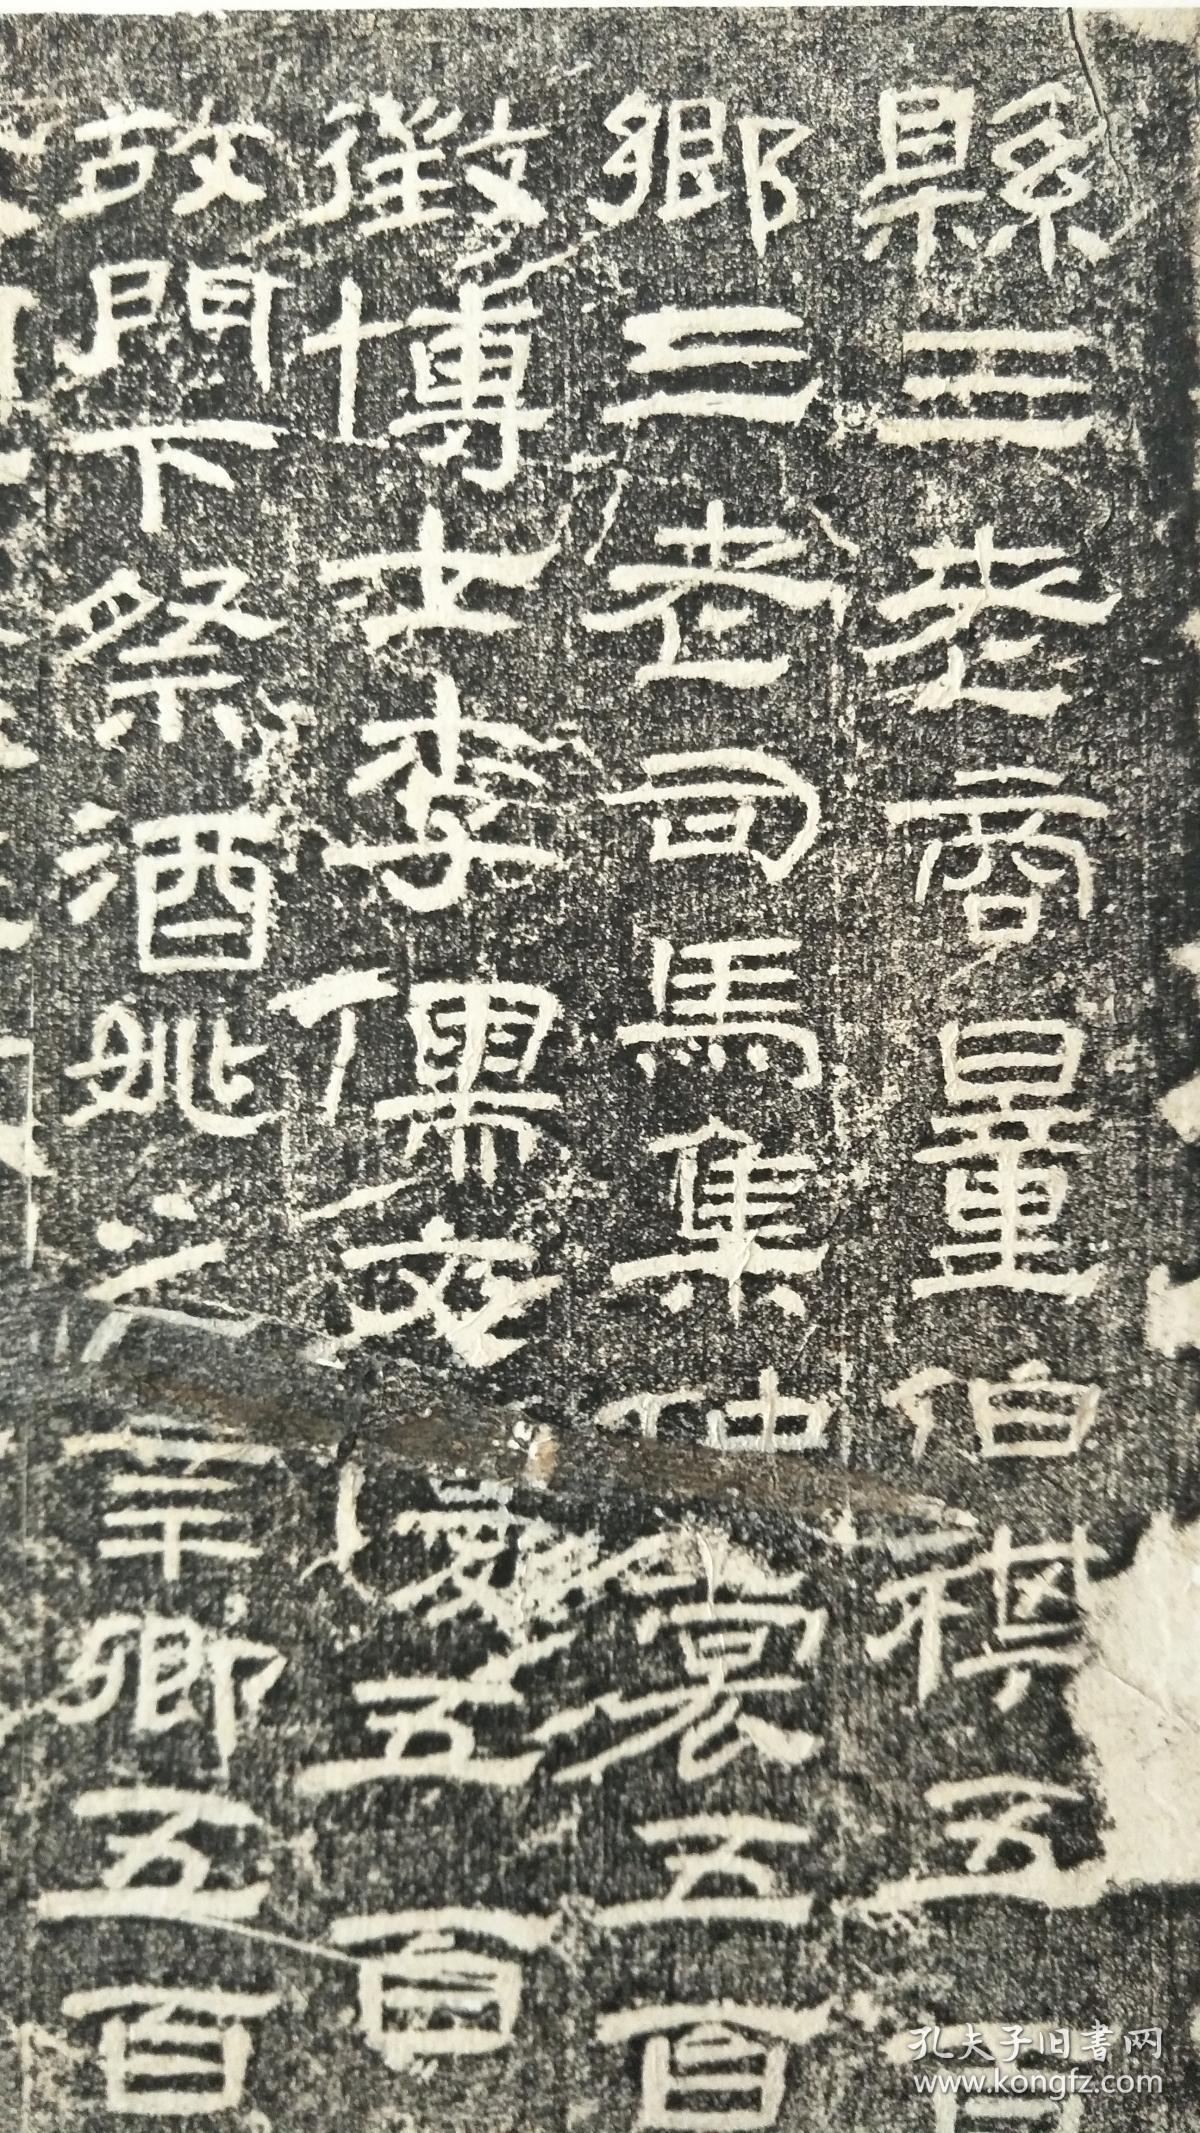 縣三老商量伯祺五百
鄉三老司馬集仲裳五百
徵博士李儒文優五百
故門下祭酒姚之辛卿五百
孔夫子旧書网
www.kongfz.com